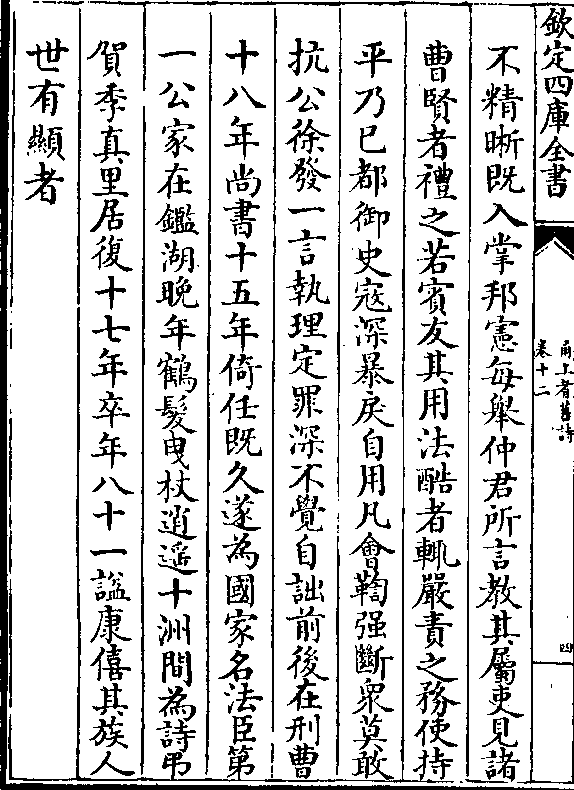 欽定四庫全書
甬上耆舊詩
卷十二
四
不精晰既入掌邦憲每舉仲君所言教其屬吏見諸
曹賢者禮之若賓友其用法酷者輒嚴責之務使持
平乃已都御史寇深暴戾自用凡會鞫强斷衆莫敢
抗公徐發一言執理定罪深不覺自詘前後在刑曹
十八年尚書十五年倚任既久遂為國家名法臣第
一公家在鑑湖晩年鶴髪曳杖逍遥十洲間為詩弔
賀季真里居復十七年卒年八十一諡康僖其族人
世有顯者